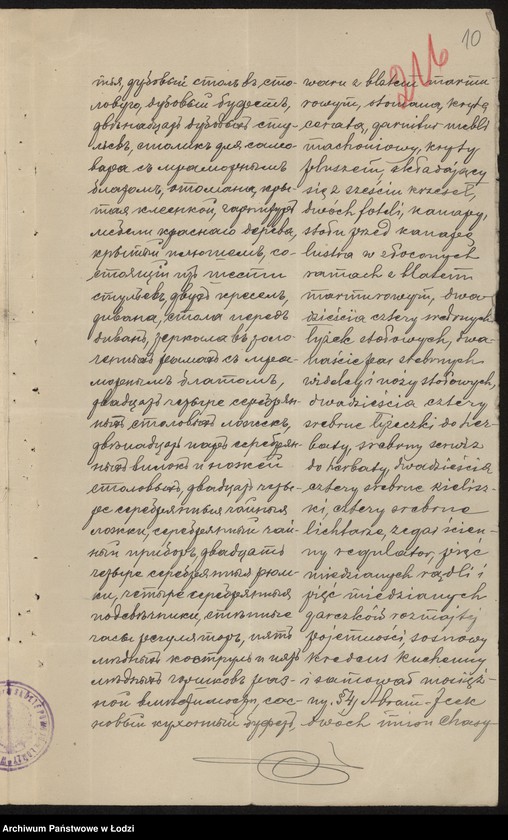 10
216
тыя, дубовый столъ въ сто-
ловую, дубовый буфетъ,
двѣнадцать дубовыхъ сту-
льевъ, столикъ для само-
вара съ мраморнымъ
блатомъ, отомана, кры-
тая клеенкой, гарнитуръ
мебели краснаго дерева,
крытый плюшемъ, со-
стоящій изъ шести
стульевъ, двухъ креселъ,
дивана, стола передъ
диванъ, зеркала въ золо-
ченныхъ рамахъ съ мра-
морнымъ блатомъ,
двадцать четыре серебрян-
ныхъ столовыхъ ложекъ,
двѣнадцать паръ серебрян-
ныхъ вилокъ и ножей
столовыхъ, двадцать четы-
ре серебрянныя чайныя
ложки, серебрянный чай-
ный приборъ, двадцать
четыре серебрянныя рюм-
ки, четыре серебрянныя
подсвѣчники, стѣнные
часы регуляторъ, пять
мѣдныхъ кострюль и пять
мѣдныхъ горшковъ раз-
ной вмѣстимости, сос-
новый кухонный буфетъ,
waru z blatem marmu-
rowym, otomana, kryta
ceratą, garnitur mebli
machoniowy, kryty
pluszem, składający
się z sześciu krzeseł,
dwóch foteli, kanapy,
stołu przed kanapę,
lustra w złoconych
ramach z blatem
marmurowym, dwa-
dzieścia cztery srebrnych
łyżek stołowych, dwa-
naście par srebrnych
widelcy i noży stołowych,
dwadzieścia cztery
srebrne łyżeczki do her-
baty, srebrny serwis
do herbaty, dwadzieścia
cztery srebrne kielisz-
ki, cztery srebrne
lichtarze, zegar ścien-
ny regulator, pięć
miedzianych rądli i
pięć miedzianych
garczków rozmajtej
pojemności, sosnowy
kredens kuchenny
i samowar mosięż-
ny. § 4) Abram-Icek
dwóch imion Chasy-
Archiwum Państwowe w Łodzi